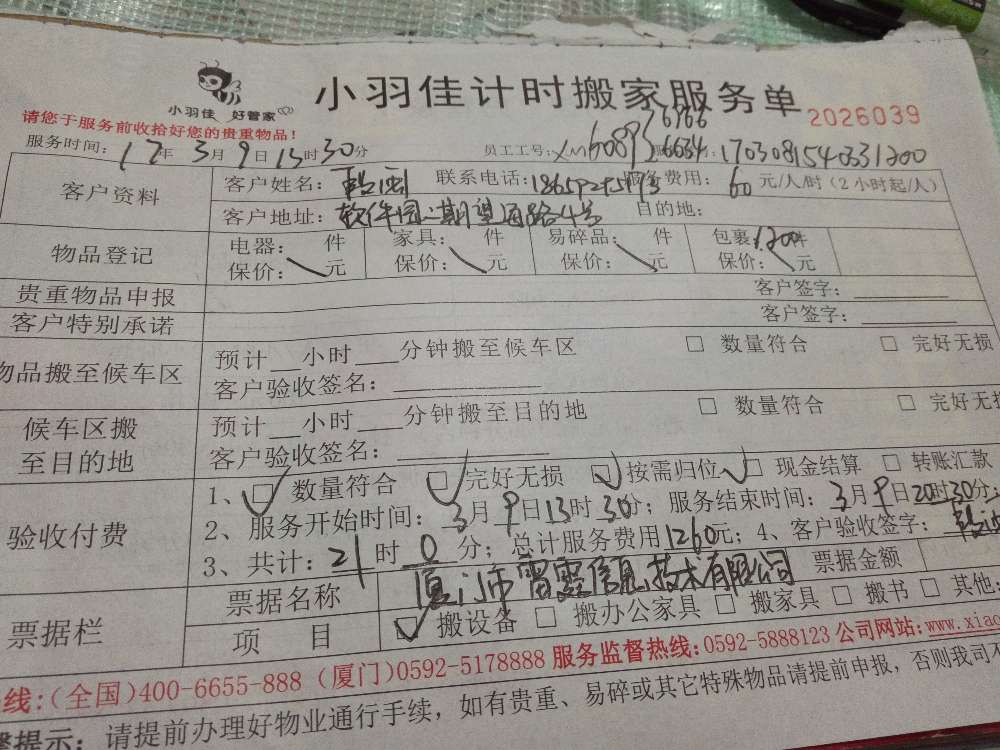 小羽佳 好管家
小羽佳计时搬家服务单 2026039
请您于服务前收拾好您的贵重物品！
服务时间：17年3月9日13时30分 员工工号： 1703081540331200
客户资料 客户姓名： 联系电话： 服务费用：60元/人/时（2小时起/人）
客户地址：软件园二期望海路4号 目的地：
物品登记 电器： 件 家具： 件 易碎品： 件 包裹： 件
保价： 元 保价： 元 保价： 元 保价： 元
贵重物品申报 客户签字：
客户特别承诺 客户签字：
物品搬至候车区 预计 小时 分钟搬至候车区 □ 数量符合 □ 完好无损
客户验收签名：
候车区搬至目的地 预计 小时 分钟搬至目的地 □ 数量符合 □ 完好无损
客户验收签名：
验收付费 1、☑ 数量符合 ☑ 完好无损 ☑ 按需归位 ☑ 现金结算 □ 转账汇款
2、服务开始时间：3月9日13时30分；服务结束时间：3月9日20时30分；
3、共计：21时0分；总计服务费用1260元；4、客户验收签字：
票据栏 票据名称 厦门市 信息技术有限公司 票据金额
项 目 ☑ 搬设备 □ 搬办公家具 □ 搬家具 □ 搬书 □ 其他
线：（全国）400-6655-888（厦门）0592-5178888 服务监督热线：0592-5888123 公司网站：www.xiao
提示：请提前办理好物业通行手续，如有贵重、易碎或其它特殊物品请提前申报，否则我司不